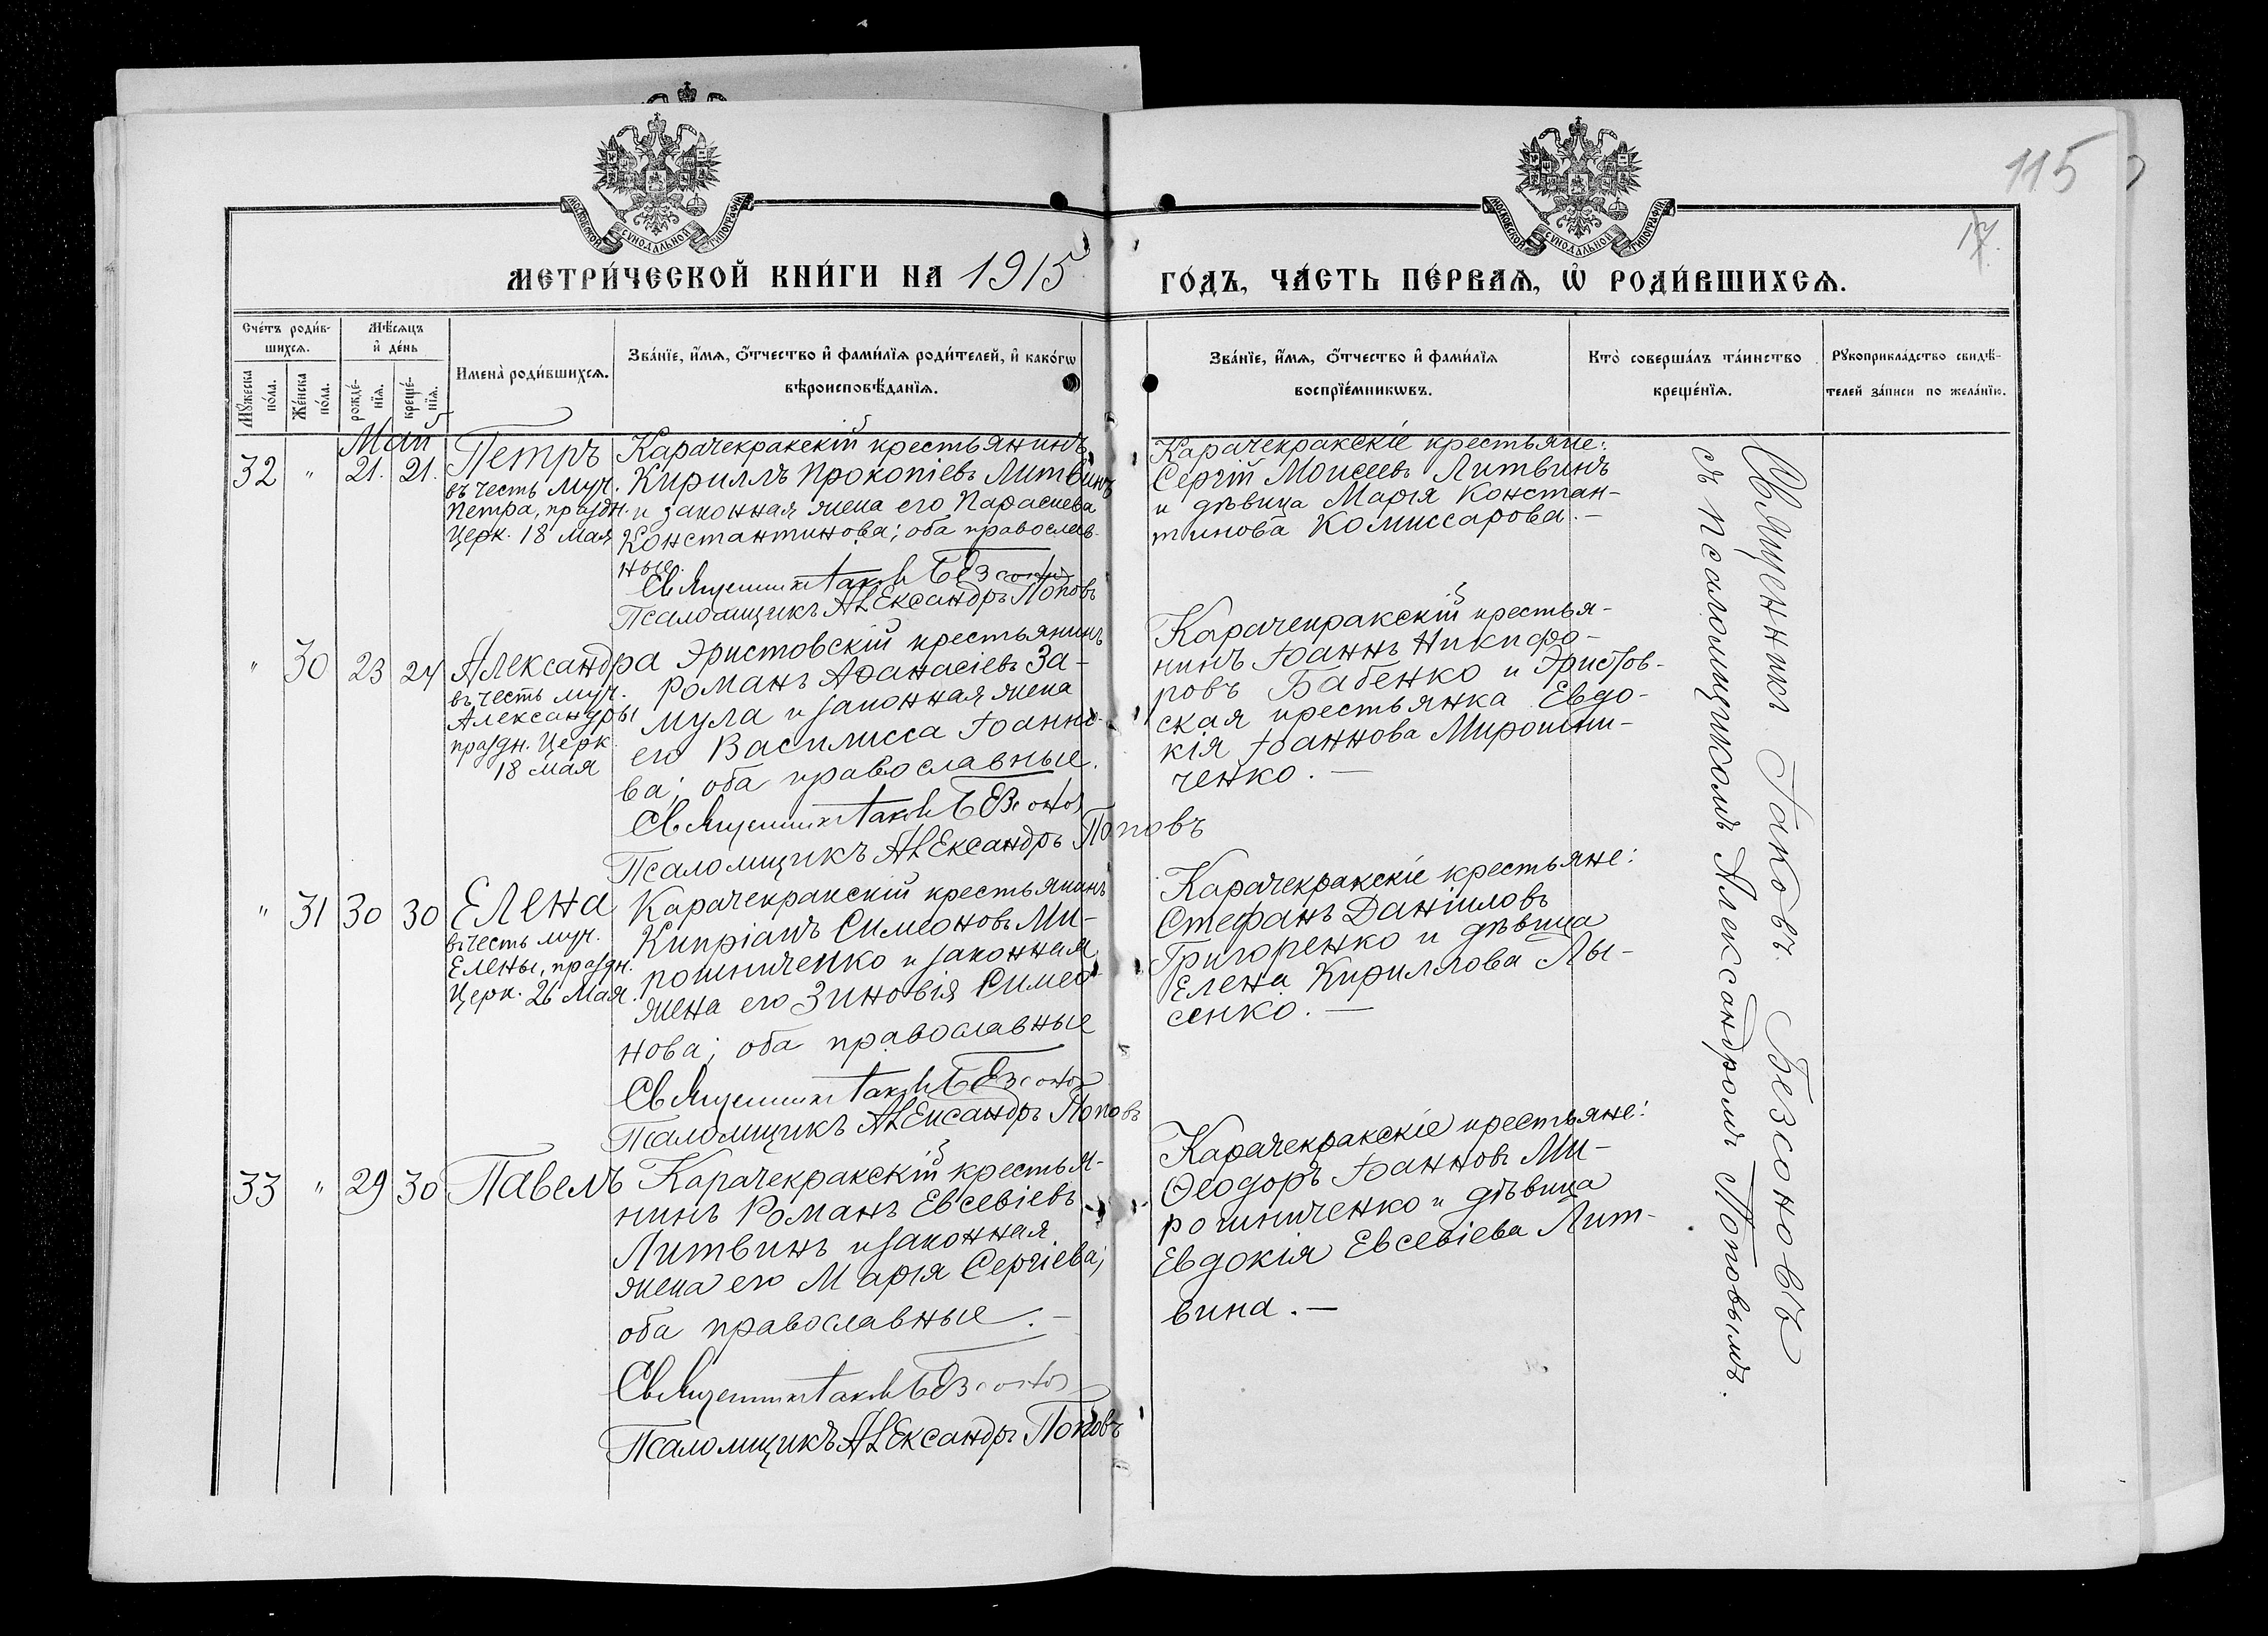 115
17.
МОСКОВСКОЙ СѴНОДАЛЬНОЙ ТИПОГРАФІИ
МОСКОВСКОЙ СѴНОДАЛЬНОЙ ТИПОГРАФІИ
МЕТРИ́ЧЕСКОЙ КНИ́ГИ НА 1915
ГО́ДЪ, ЧА́СТЬ ПЕ́РВАѦ, Ѡ҆ РОДИ́ВШИХСѦ.
Сче́тъ роди́в-
шихсѧ.
Мѣ́сѧцъ
и҆ де́нь
Мꙋ́жеска
по́ла.
Же́нска
по́ла.
рожде́-
нїѧ.
креще́-
нїѧ.
Имена̀ роди́вшихсѧ.
Зва́нїе, и҆́мѧ, ѻ҆́тчество и҆ фами́лїѧ роди́телей, и҆ како́гѡ
вѣроисповѣ́данїѧ.
Зва́нїе, и҆́мѧ, ѻ҆́тчество и҆ фами́лїѧ
воспрїе́мникѡвъ.
Кто̀ соверша́лъ та́инство
креще́нїѧ.
Рꙋкоприкла́дство свидѣ́-
телей за́писи по жела́нїю.
Май
32 " 21. 21.
Петръ
въ честь муч.
Петра, праздн.
Церк. 18 мая
Карачекракскій крестьянинъ
Кириллъ Прокопіевъ Литвинъ
и законная жена его Параскева
Константинова; оба православ-
ные.
Священникъ Іаковъ Безсоновъ
Псаломщикъ Александръ Поповъ
Карачекракскіе крестьяне:
Сергій Моисеевъ Литвинъ
и дѣвица Марія Констан-
тинова Комиссарова. —
" 30 23 24
Александра
въ честь муч.
Александры
праздн. Церк.
18 мая
Эристовскій крестьянинъ
Романъ Аѳанасіевъ За-
мула и законная жена
его Василисса Іоанно-
ва; оба православные.
Священникъ Іаковъ Безсоновъ
Псаломщикъ Александръ Поповъ
Карачекракскій крестья-
нинъ Іоаннъ Никифо-
ровъ Бабенко и Эристов-
ская крестьянка Евдо-
кія Іоаннова Мирошни-
ченко. —
" 31 30 30
Елена
въ честь муч.
Елены, праздн.
Церк. 26 Мая.
Карачекракскій крестьянинъ
Кипріанъ Симеоновъ Ми-
рошниченко и законная
жена его Зиновія Симео-
нова; оба православные
Священникъ Іаковъ Безсоновъ
Псаломщикъ Александръ Поповъ
Карачекракскіе крестьяне:
Стефанъ Даніиловъ
Григоренко и дѣвица
Елена Кириллова Лы-
сенко. —
33 " 29 30
Павелъ
Карачекракскій крестья-
нинъ Романъ Евсевіевъ
Литвинъ и законная
жена его Марія Сергіева;
оба православные. —
Священникъ Іаковъ Безсоновъ
Псаломщикъ Александръ Поповъ
Карачекракскіе крестьяне:
Ѳеодоръ Іоанновъ Ми-
рошниченко и дѣвица
Евдокія Евсевіева Лит-
вина. —
Священникъ Іаковъ Безсоновъ
съ псаломщикомъ Александромъ Поповымъ.